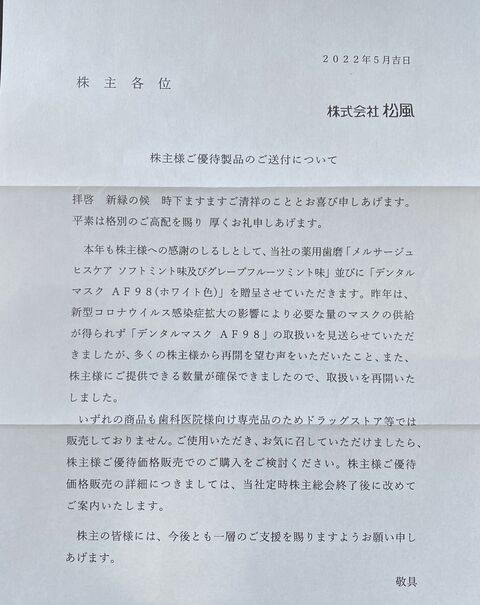 2022年5月吉日
株主各位
株式会社 松風
株主様ご優待製品のご送付について
拝啓 新緑の候 時下ますますご清祥のこととお喜び申しあげます。
平素は格別のご高配を賜り 厚くお礼申しあげます。
本年も株主様への感謝のしるしとして、当社の薬用歯磨「メルサージュ
ヒスケア ソフトミント味及びグレープフルーツミント味」並びに「デンタル
マスク AF98(ホワイト色)」を贈呈させていただきます。昨年は、
新型コロナウイルス感染症拡大の影響により必要な量のマスクの供給
が得られず「デンタルマスク AF98」の取扱いを見送らせていただ
きましたが、多くの株主様から再開を望む声をいただいたこと、また、
株主様にご提供できる数量が確保できましたので、取扱いを再開いた
しました。
いずれの商品も歯科医院様向け専売品のためドラッグストア等では
販売しておりません。ご使用いただき、お気に召していただけましたら、
株主様ご優待価格販売でのご購入をご検討ください。株主様ご優待
価格販売の詳細につきましては、当社定時株主総会終了後に改めて
ご案内いたします。
株主の皆様には、今後とも一層のご支援を賜りますようお願い申し
あげます。
敬具